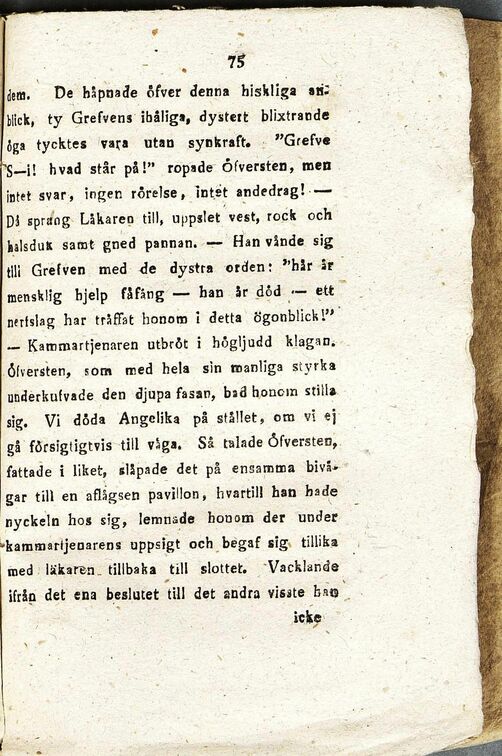 75
dem. De håpnade öfver denna hiskliga an-
blick, ty Grefvens ihåliga, dystert blixtrande
öga tycktes vara utan synkraft. ”Grefve
S—i! hvad står på!” ropade Öfversten, men
intet svar, ingen rörelse, intet andedrag! —
Då sprang Läkaren till, uppslet vest, rock och
halsduk samt gned pannan. — Han vände sig
till Grefven med de dystra orden: ”här är
mensklig hjelp fåfäng — han är död — ett
nerfslag har träffat honom i detta ögonblick!”
— Kammartjenaren utbröt i högljudd klagan.
Öfversten, som med hela sin manliga styrka
underkufvade den djupa fasan, bad honom stilla
sig. Vi döda Angelika på stället, om vi ej
gå försigtigtvis till väga. Så talade Öfversten,
fattade i liket, släpade det på ensamma bivä-
gar till en aflägsen pavillon, hvartill han hade
nyckeln hos sig, lemnade honom der under
kammartjenarens uppsigt och begaf sig tillika
med läkaren tillbaka till slottet. Vacklande
ifrån det ena beslutet till det andra visste han
icke